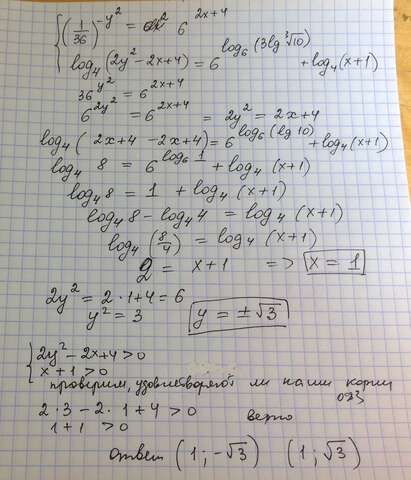 { (1/36)^(-y²) = 6^(2x+4)
log₄(2y² - 2x+4) = 6^(log₆(3lg ∛10)) + log₄(x+1)
36^(y²) = 6^(2x+4)
6^(2y²) = 6^(2x+4) = 2y² = 2x+4
log₄( 2x+4 -2x+4) = 6^(log₆(lg 10)) + log₄(x+1)
log₄ 8 = 6^(log₆ 1) + log₄ (x+1)
log₄8 = 1 + log₄ (x+1)
log₄8 - log₄4 = log₄ (x+1)
log₄(8/4) = log₄ (x+1)
2 = x+1 => x = 1
2y² = 2·1+4 = 6
y² = 3 y = ±√3
{ 2y² - 2x+4 > 0
x + 1 > 0
проверим, удовлетворяют ли наши корни
ОДЗ
2·3 - 2·1+4 > 0 верно
1+1 > 0
ответ (1; -√3) (1; √3)